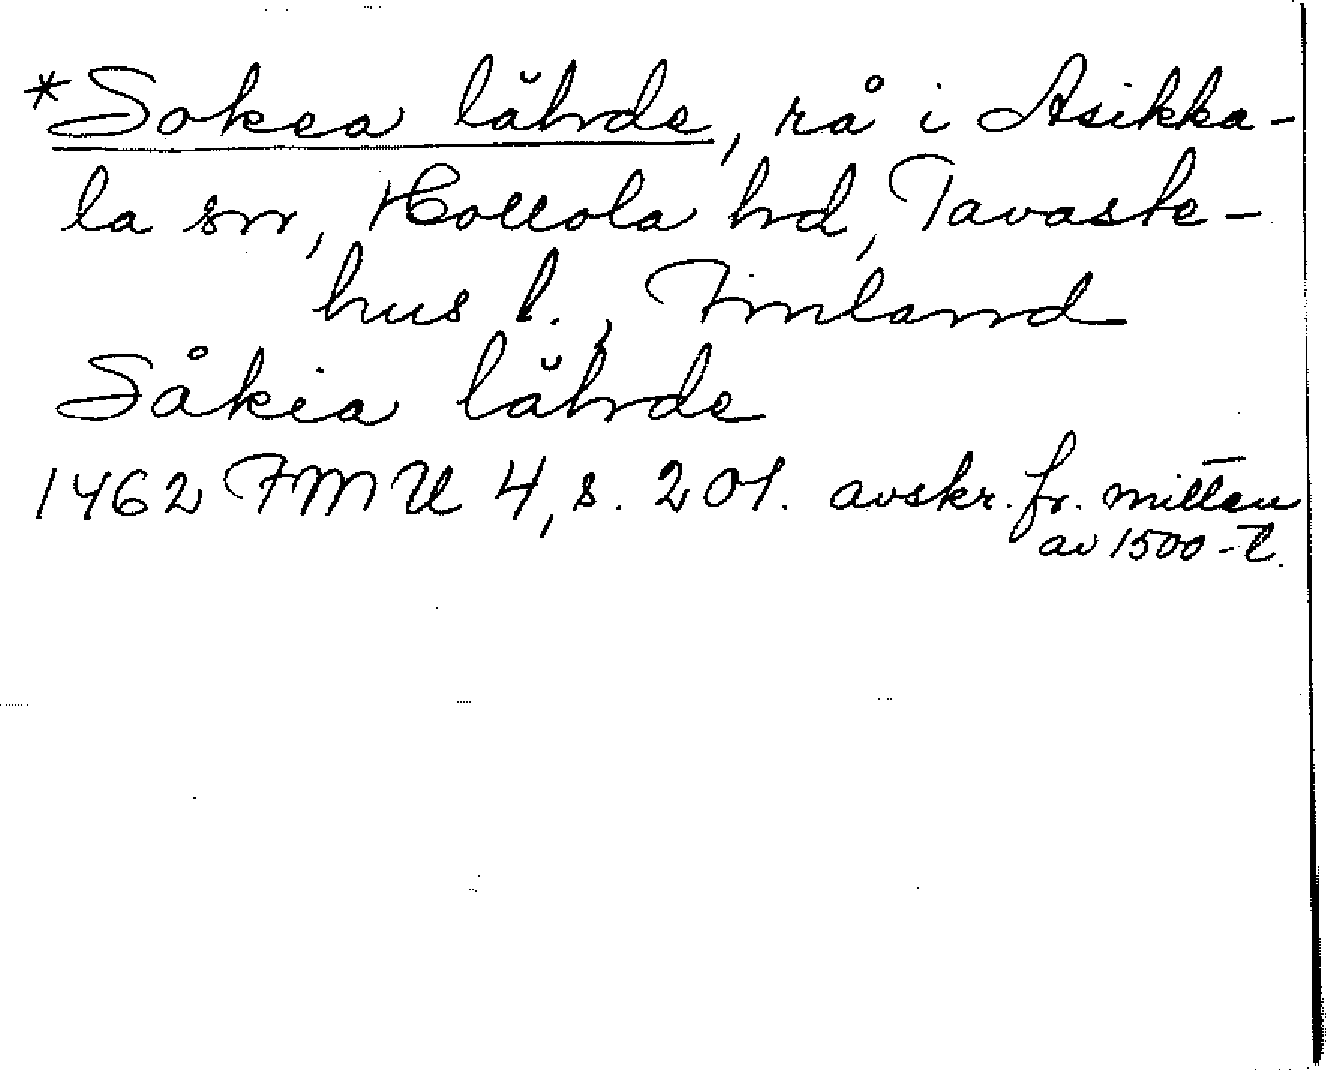 *Sokea lähde, rå i Asikka-
la sn, Hollola hd, Tavaste-
hus l., Finland
Såkia lähde
1462 FMU 4, s. 201. avskr. fr. mitten
av 1500-t.